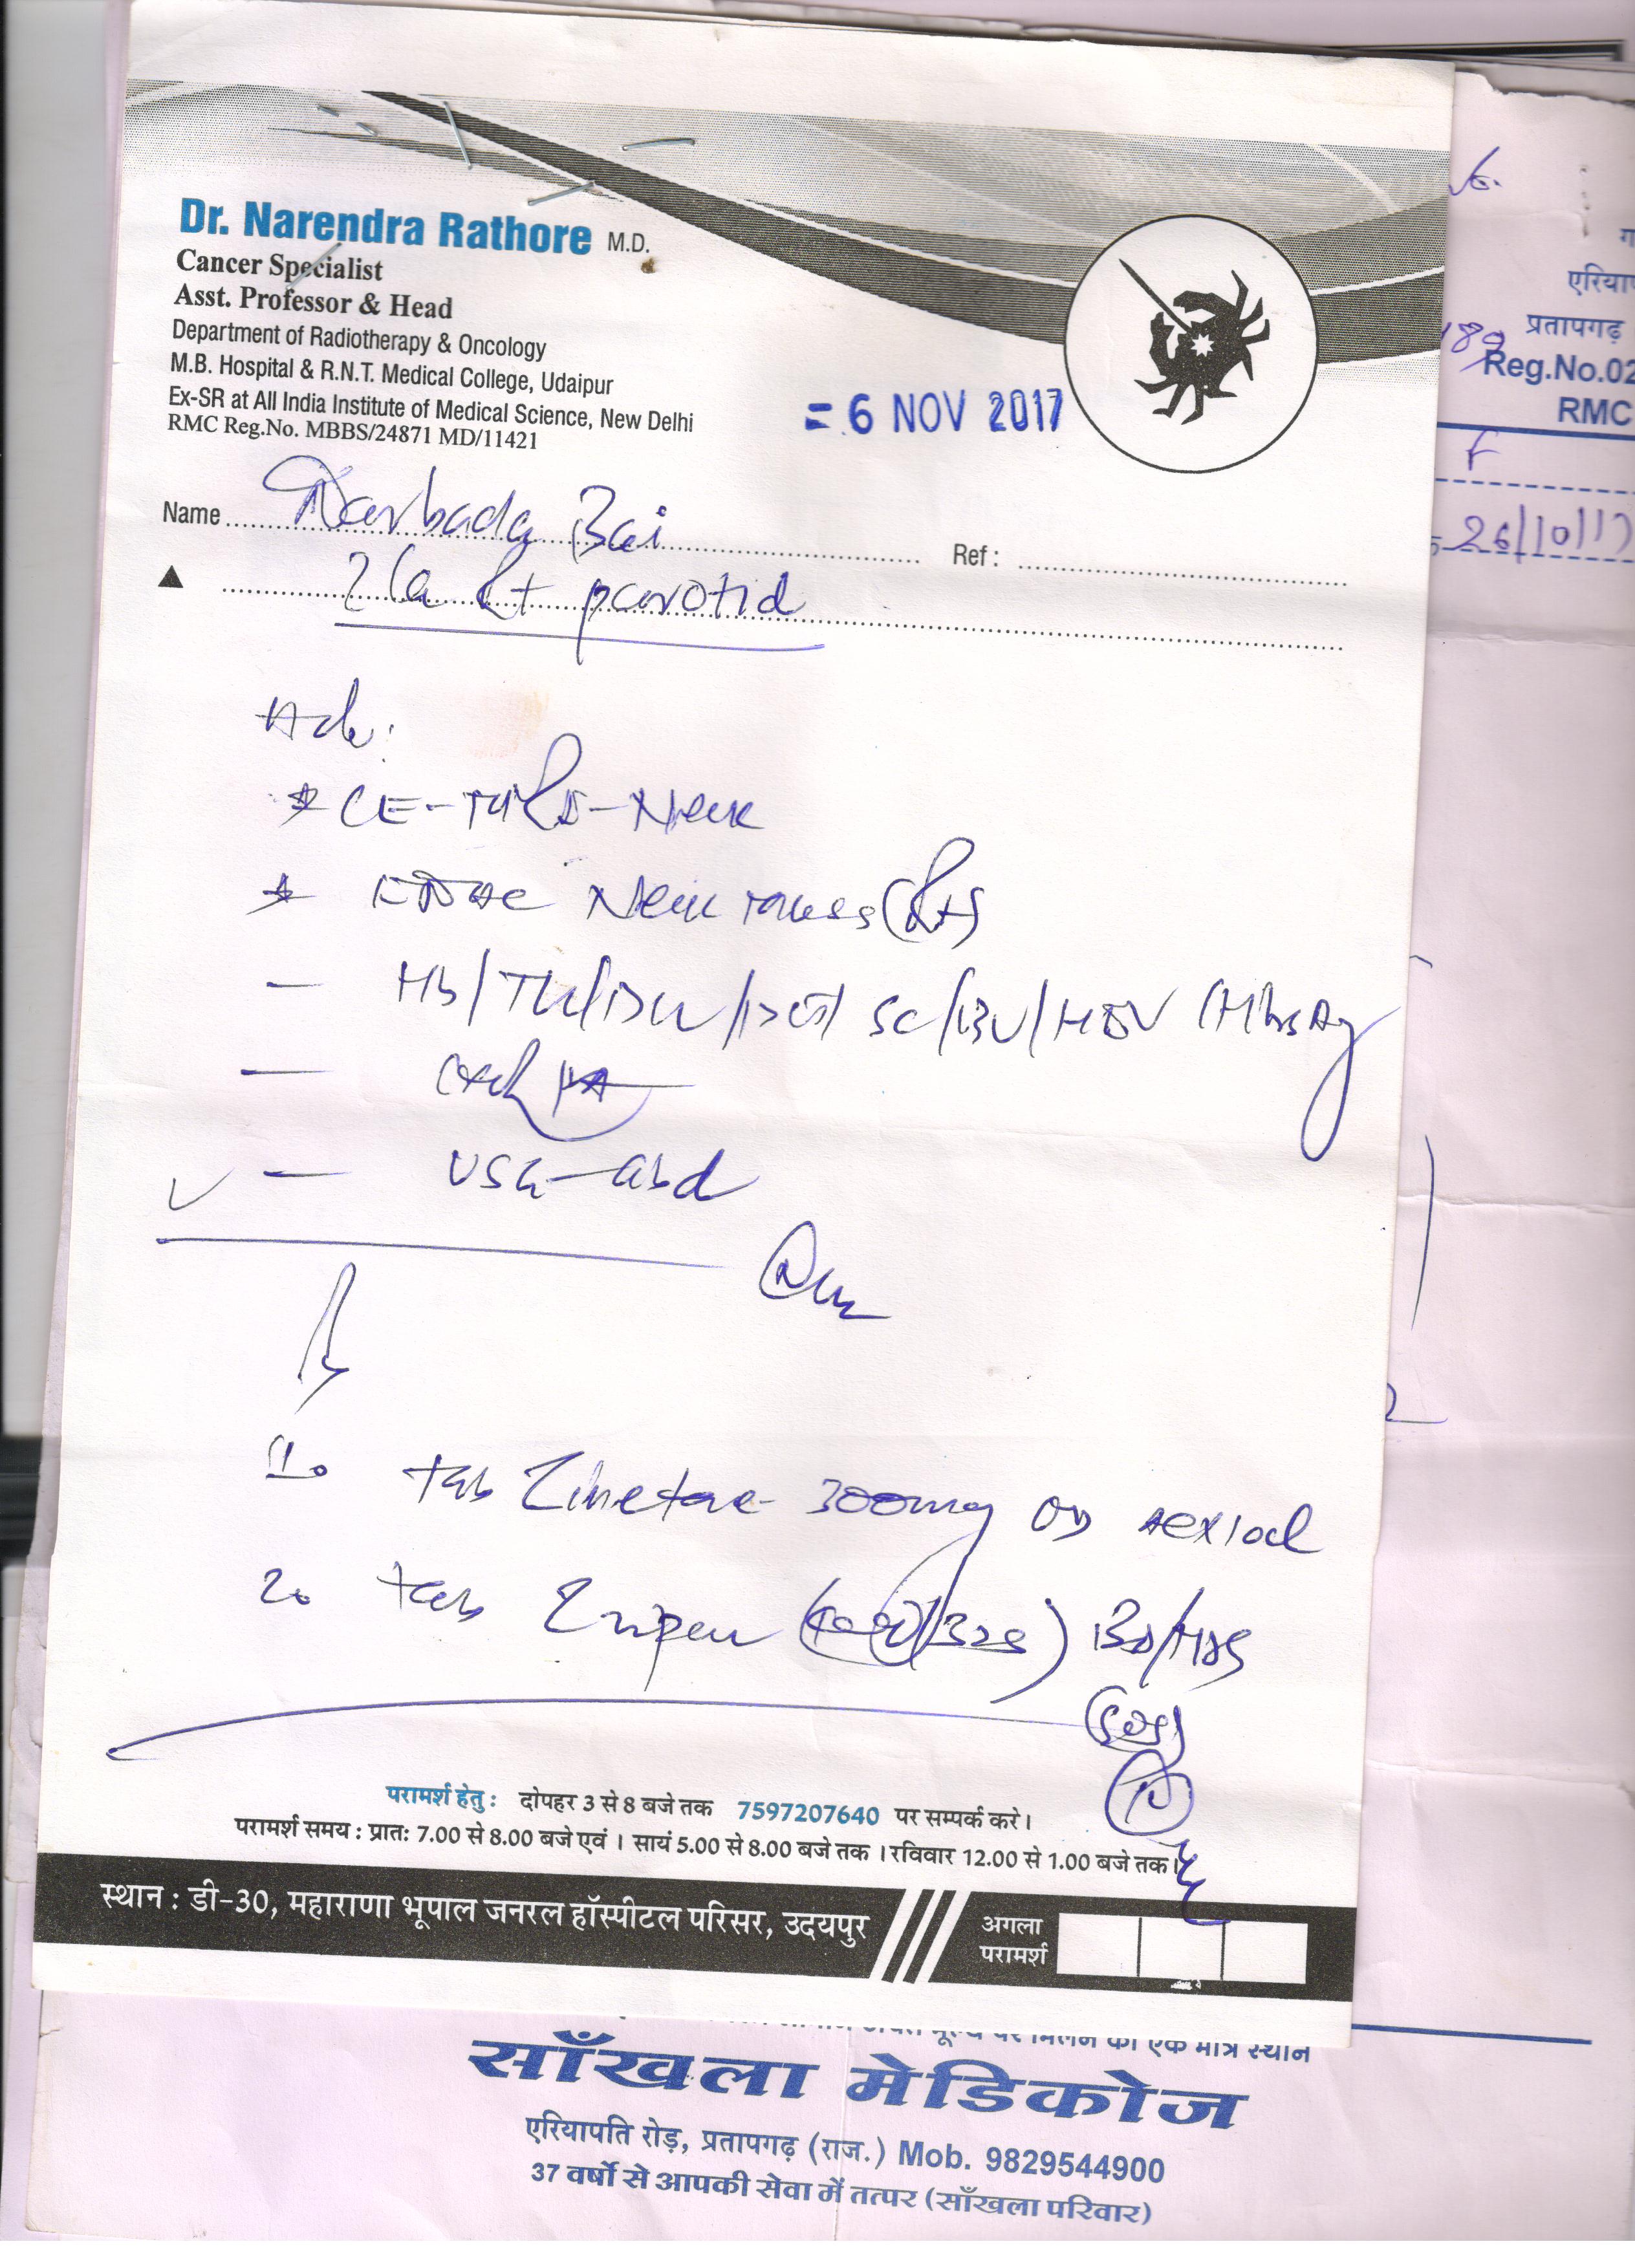 Dr. Narendra Rathore M.D.
Cancer Specialist
Asst. Professor & Head
Department of Radiotherapy & Oncology
M.B. Hospital & R.N.T. Medical College, Udaipur
Ex-SR at All India Institute of Medical Science, New Delhi
RMC Reg.No. MBBS/24871 MD/11421
= 6 NOV 2017
Name Narbada Bai
Ref :
? Ca Rt parotid
Adv:
* CE- - Neck
* FNAC Neck mass (Rt)
- Hb/TLC/DLC/ SC/BU/HIV/HbsAg
- PA
- USG-abd
1. tab 300mg OD
2. tab /325) BD/
(SOS)
परामर्श हेतु : दोपहर 3 से 8 बजे तक 7597207640 पर सम्पर्क करे।
परामर्श समय : प्रातः 7.00 से 8.00 बजे एवं । सायं 5.00 से 8.00 बजे तक । रविवार 12.00 से 1.00 बजे तक।
स्थान : डी-30, महाराणा भूपाल जनरल हॉस्पीटल परिसर, उदयपुर
अगला
परामर्श
प्रतापगढ़
Reg.No.02
RMC
F
26/10/17
मूल्य पर मिलने का एक मात्र स्थान
साँखला मेडिकोज
एरियापति रोड़, प्रतापगढ़ (राज.) Mob. 9829544900
37 वर्षो से आपकी सेवा में तत्पर (साँखला परिवार)